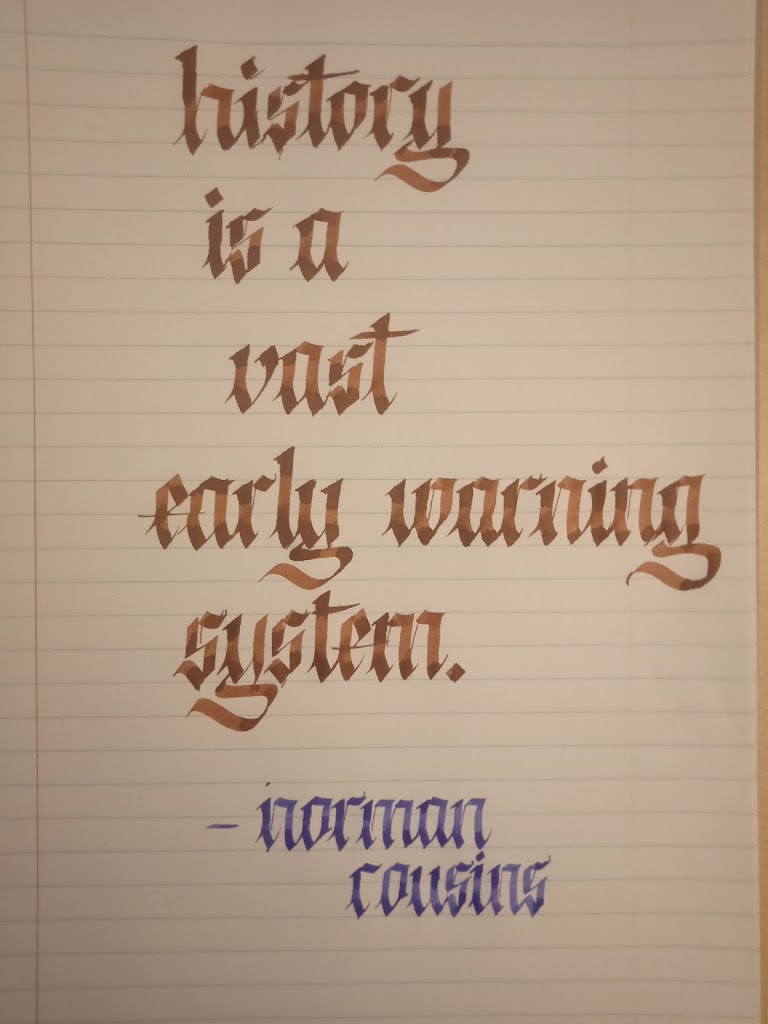 history
is a
vast
early warning
system.
- norman
cousins